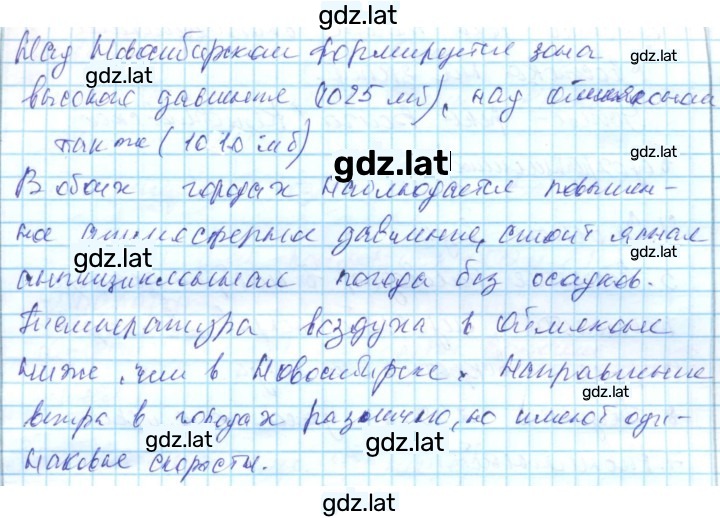 gdz.lat
Над Новосибирском формируется зона
gdz.lat
gdz.lat
высокого давления (1025 мб), над Оймяконом
также (1010 мб)
gdz.lat
gdz.lat
В обоих городах наблюдается повышен-
ное атмосферное давление, стоит ясная
gdz.lat
gdz.lat
антициклональная погода без осадков.
Температура воздуха в Оймяконе
ниже, чем в Новосибирске. Направление
gdz.lat
ветра в городах различно, но имеют оди-
gdz.lat
gdz.lat
наковые скорости.
gdz.lat